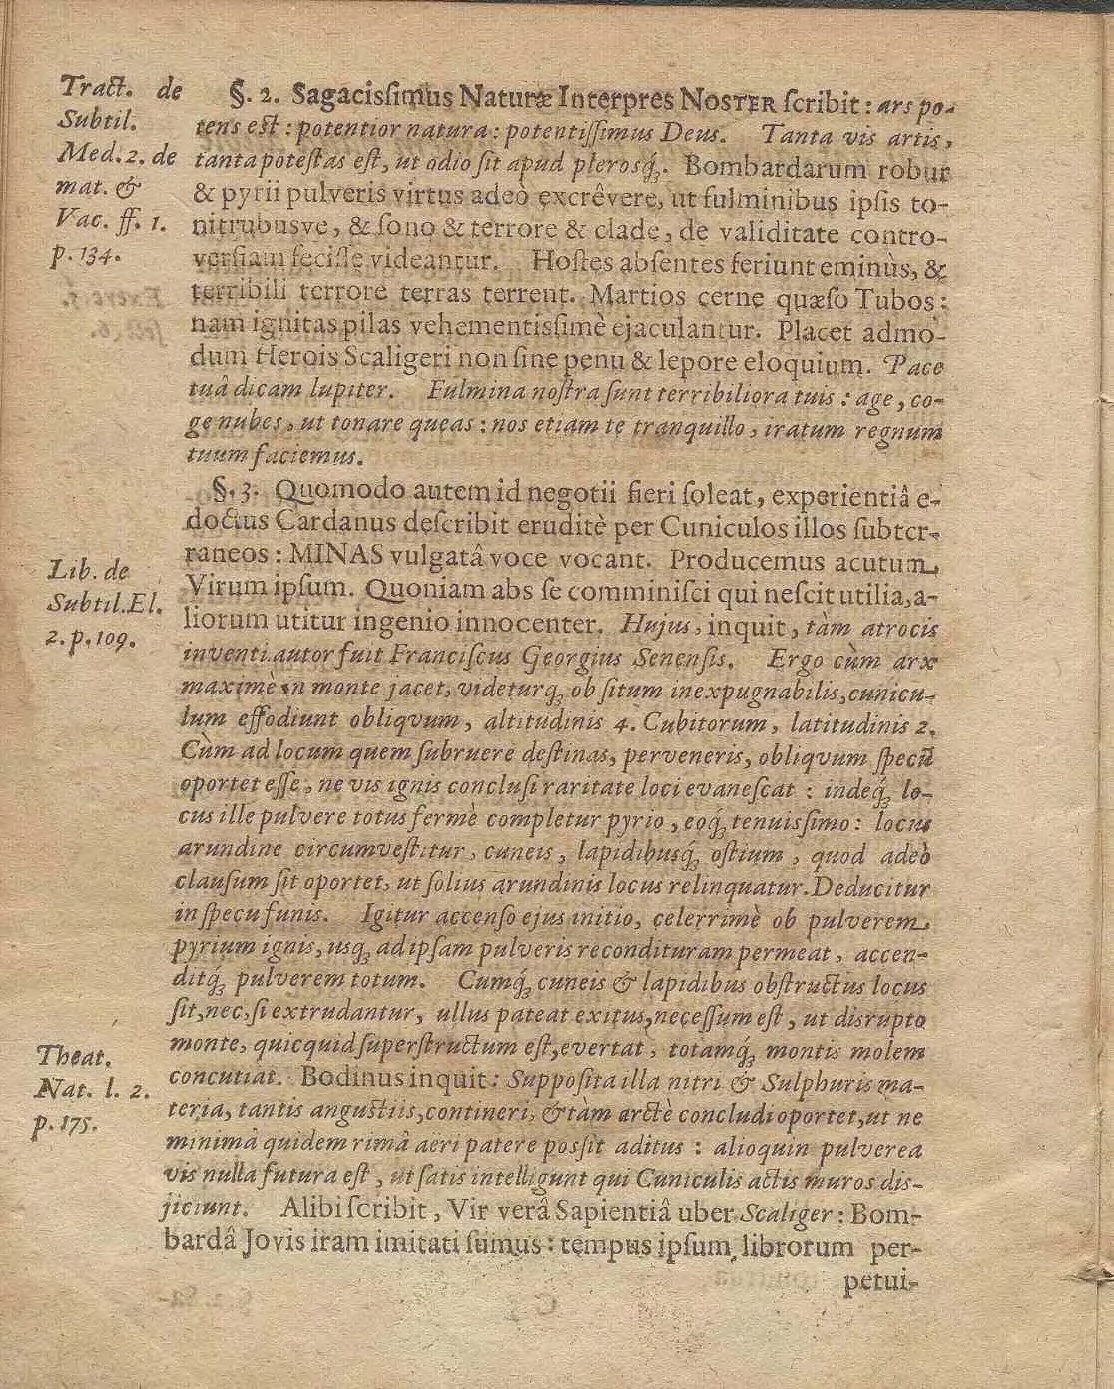 Tract. de
Subtil.
Med. 2. de
mat. &
Vac. ff. 1.
p. 134.
§. 2. Sagacisſimus Naturæ Interpres NOSTER ſcribit: ars po-
tens eſt: potentior natura: potentiſſimus Deus. Tanta vis artis,
tanta poteſtas eſt, ut odio ſit apud plerosq́;. Bombardarum robur
& pyrii pulveris virtus adeò excrêvere, ut fulminibus ipſis to-
nitrubusve, & ſono & terrore & clade, de validitate contro-
verſiam feciſſe videantur. Hoſtes abſentes feriunt eminùs, &
terribili terrore terras terrent. Martios cerne quæſo Tubos:
nam ignitas pilas vehementisſimè ejaculantur. Placet admo-
dum Herois Scaligeri non ſine penu & lepore eloquium. Pace
tuâ dicam Iupiter. Fulmina noſtra ſunt terribiliora tuis: age, co-
ge nubes, ut tonare queas: nos etiam te tranquillo, iratum regnum
tuum faciemus.
§. 3. Quomodo autem id negotii fieri ſoleat, experientiâ e-
doctus Cardanus deſcribit eruditè per Cuniculos illos ſubter-
raneos: MINAS vulgatâ voce vocant. Producemus acutum
Virum ipſum. Quoniam abs ſe comminiſci qui neſcit utilia, a-
liorum utitur ingenio innocenter. Hujus, inquit, tàm atrocis
inventi autor fuit Franciſcus Georgius Senenſis. Ergo cùm arx
maximè in monte jacet, videturq́; ob ſitum inexpugnabilis, cunicu-
lum effodiunt obliqvum, altitudinis 4. Cubitorum, latitudinis 2.
Cùm ad locum quem ſubruere deſtinas, perveneris, obliqvum ſpecũ
oportet eſſe, ne vis ignis concluſi raritate loci evaneſcat: indeq́; lo-
cus ille pulvere totus fermè completur pyrio, eoq́; tenuisſimo: locus
arundine circumveſtitur, cuneis, lapidibusq́; oſtium, quod adeò
clauſum ſit oportet, ut ſolius arundinis locus relinquatur. Deducitur
in ſpecu funis. Igitur accenſo ejus initio, celerrimè ob pulverem
pyrium ignis, usq; ad ipſam pulveris recondituram permeat, accen-
ditq́; pulverem totum. Cumq́; cuneis & lapidibus obſtructus locus
ſit, nec, ſi extrudantur, ullus pateat exitus, neceſſum eſt, ut disrupto
monte, quicquid ſuperſtructum eſt, evertat, totamq́; montis molem
concutiat. Bodinus inquit: Suppoſita illa nitri & Sulphuris ma-
teria, tantis anguſtiis, contineri, & tàm arctè concludi oportet, ut ne
minimâ quidem rimâ aeri patere posſit aditus: alioquin pulverea
vis nulla futura eſt, ut ſatis intelligunt qui Cuniculis actis muros dis-
jiciunt. Alibi ſcribit, Vir verâ Sapientiâ uber Scaliger: Bom-
bardâ Jovis iram imitati ſumus: tempus ipſum librorum per-
petui-
Lib. de
Subtil. El.
2. p. 109.
Theat.
Nat. l. 2.
p. 175.